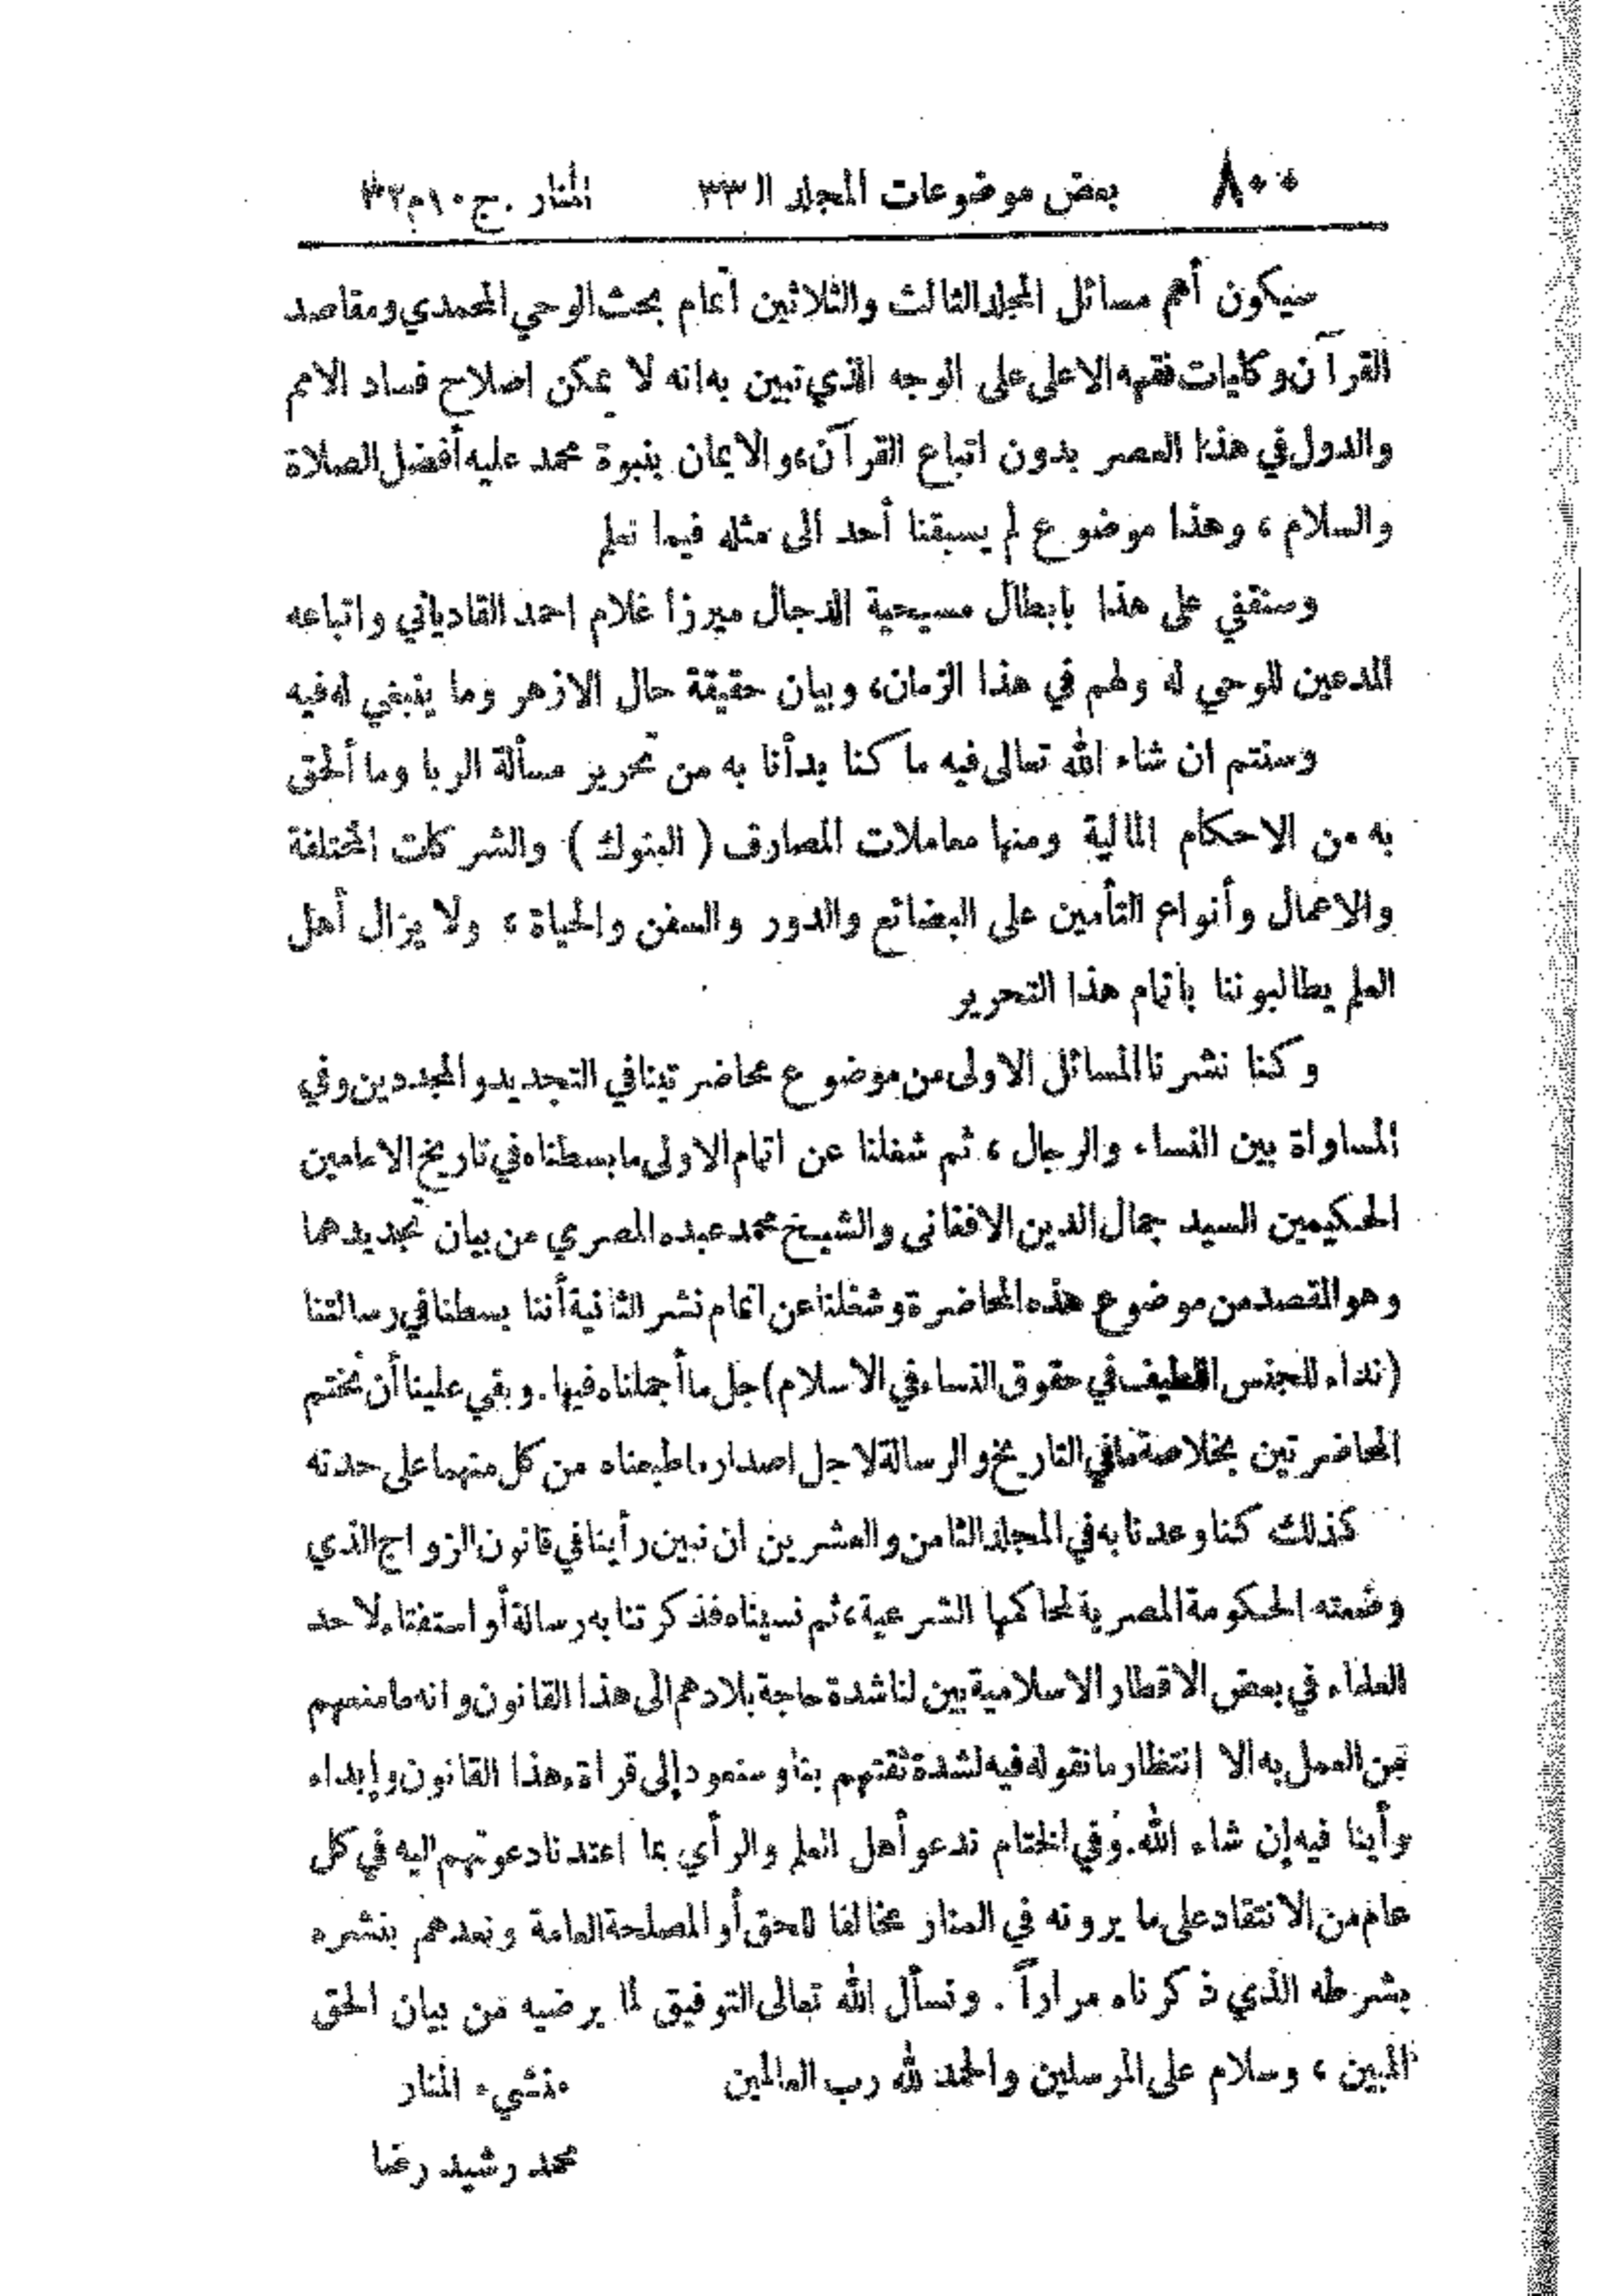 ٨٠٠ بعض موضوعات المجلد الـ ٣٣ المنار . ج ١٠ م ٣٢
سيكون أهم مسائل المجلد الثالث والثلاثين اتمام بحث الوحي المحمدي ومقاصد
القرآن وكليات فقهه الاعلى على الوجه الذي تبين به انه لا يمكن اصلاح فساد الامم
والدول في هذا العصر بدون اتباع القرآن، والايمان بنبوة محمد عليه أفضل الصلاة
والسلام ، وهذا موضوع لم يسبقنا أحد الى مثله فيما نعلم
وسنقفي على هذا بابطال مسيحية الدجال ميرزا غلام احمد القادياني واتباعه
المدعين للوحي له ولهم في هذا الزمان، وبيان حقيقة حال الازهر وما ينبغي له فيه
وسنتم ان شاء الله تعالى فيه ما كنا بدأنا به من تحرير مسألة الربا وما ألحق
به من الاحكام المالية ومنها معاملات المصارف ( البنوك ) والشركات المختلفة
والاعمال وأنواع التأمين على البضائع والدور والسفن والحياة ، ولا يزال أهل
العلم يطالبوننا باتمام هذا التحرير
وكنا نشرنا المسائل الاولى من موضوع محاضرتينا في التجديد والمجددين وفي
المساواة بين النساء والرجال ، ثم شغلنا عن اتمام الاولى ما بسطناه في تاريخ الامامين
الحكيمين السيد جمال الدين الافغاني والشيخ محمد عبده المصري من بيان تجديدهما
وهو القصد من موضوع هذه المحاضرة وشغلنا عن اتمام نشر الثانية أننا بسطنا في رسالتنا
(نداء للجنس اللطيف في حقوق النساء في الاسلام) جل ما أجملناه فيها . وبقي علينا أن نختم
المحاضرتين بخلاصة ما في التاريخ والرسالة لاجل اصدار ما طبعناه من كل منهما على حدته
كذلك كنا وعدنا به في المجلد الثامن والعشرين ان نبين رأينا في قانون الزواج الذي
وضعته الحكومة المصرية لمحاكمها الشرعية، ثم نسيناه فذكرتنا به رسالة أو استفتاء لاحد
العلماء في بعض الاقطار الاسلامية بين لنا شدة حاجة بلادهم الى هذا القانون وانه ما منعهم
من العمل به الا انتظار ما نقوله فيه لشدة ثقتهم بنا وسنعود إلى قراءة هذا القانون وإبداء
رأينا فيه إن شاء الله. وفي الختام ندعو أهل العلم والرأي بما اعتدنا دعوتهم اليه في كل
عام من الانتقاد على ما يرونه في المنار مخالفا للحق أو المصلحة العامة ونعدهم بنشره
بشرطه الذي ذكرناه مراراً . ونسأل الله تعالى التوفيق لما يرضيه من بيان الحق
المبين ، وسلام على المرسلين والحمد لله رب العالمين منشيء المنار
محمد رشيد رضا